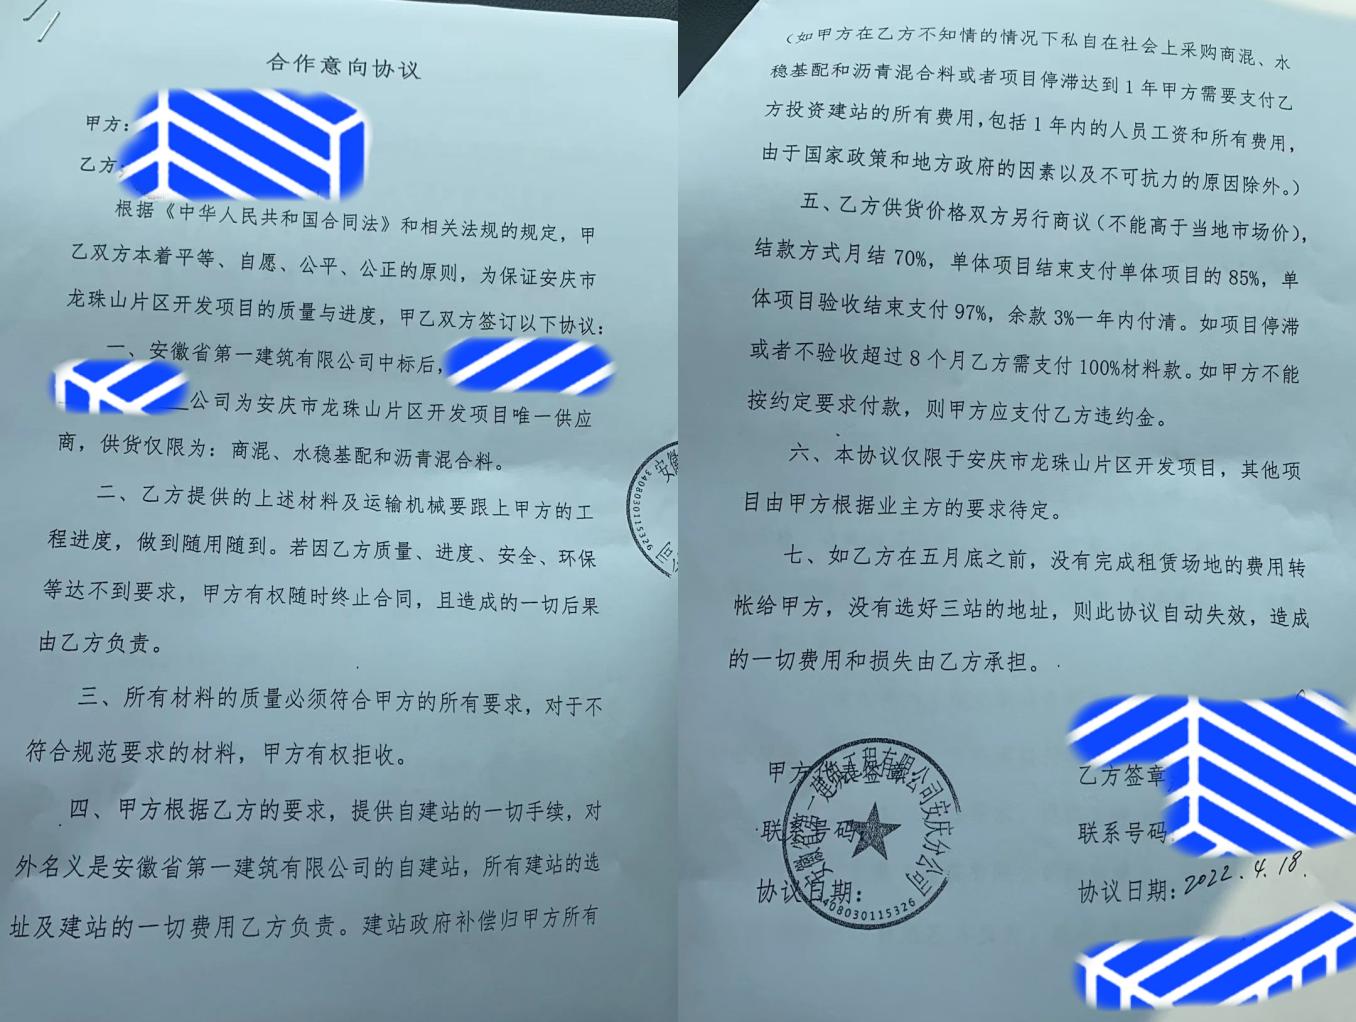 合作意向协议
甲方：
乙方：
根据《中华人民共和国合同法》和相关法规的规定，甲
乙双方本着平等、自愿、公平、公正的原则，为保证安庆市
龙珠山片区开发项目的质量与进度，甲乙双方签订以下协议：
一、安徽省第一建筑有限公司中标后，
公司为安庆市龙珠山片区开发项目唯一供应
商，供货仅限为：商混、水稳基配和沥青混合料。
二、乙方提供的上述材料及运输机械要跟上甲方的工
程进度，做到随用随到。若因乙方质量、进度、安全、环保
等达不到要求，甲方有权随时终止合同，且造成的一切后果
由乙方负责。
三、所有材料的质量必须符合甲方的所有要求，对于不
符合规范要求的材料，甲方有权拒收。
四、甲方根据乙方的要求，提供自建站的一切手续，对
外名义是安徽省第一建筑有限公司的自建站，所有建站的选
址及建站的一切费用乙方负责。建站政府补偿归甲方所有
安徽
3408030115326
公司
（如甲方在乙方不知情的情况下私自在社会上采购商混、水
稳基配和沥青混合料或者项目停滞达到1年甲方需要支付乙
方投资建站的所有费用，包括1年内的人员工资和所有费用，
由于国家政策和地方政府的因素以及不可抗力的原因除外。）
五、乙方供货价格双方另行商议（不能高于当地市场价），
结款方式月结70%，单体项目结束支付单体项目的85%，单
体项目验收结束支付97%，余款3%一年内付清。如项目停滞
或者不验收超过8个月乙方需支付100%材料款。如甲方不能
按约定要求付款，则甲方应支付乙方违约金。
六、本协议仅限于安庆市龙珠山片区开发项目，其他项
目由甲方根据业主方的要求待定。
七、如乙方在五月底之前，没有完成租赁场地的费用转
帐给甲方，没有选好三站的地址，则此协议自动失效，造成
的一切费用和损失由乙方承担。
甲方代表签章：
联系号码
协议日期：
安徽省第一建筑工程有限公司安庆分公司
3408030115326
乙方签章
联系号码
协议日期：2022.4.18.